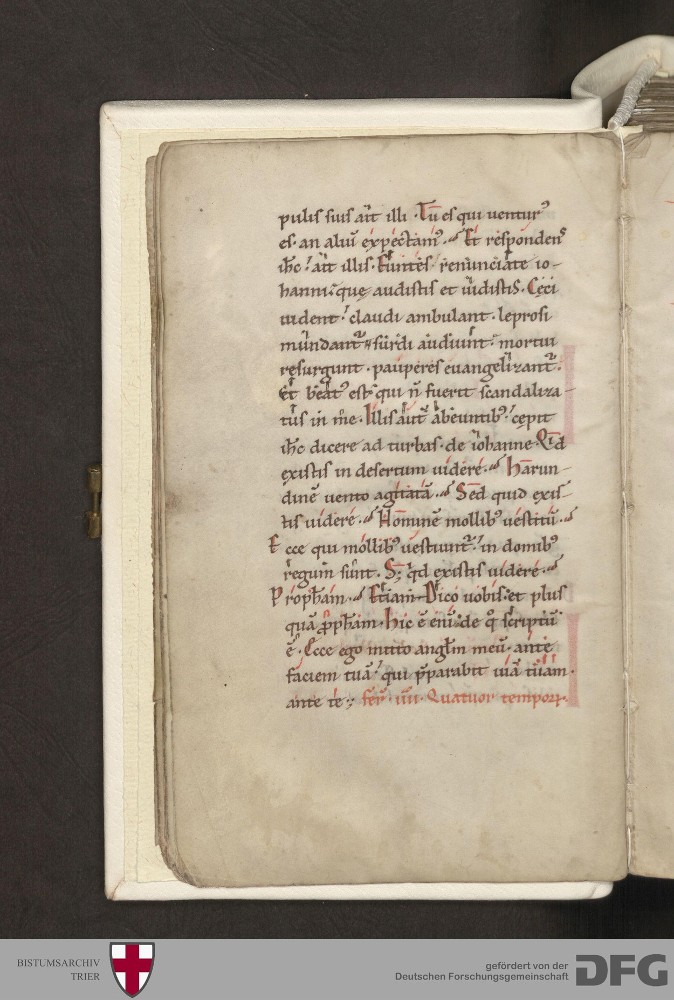 pulis suis ait illi · Tu es qui ventur᷒
es · an aliū expectam᷒ · Et responden᷒
ih̄c · ait illis · Euntes renunciate io-
hanni · que audistis et uidistis · Ceci
uident · claudi ambulant · leprosi
mundant᷑ · surdi audiunt · mortui
resurgunt · pauperes euangelizant᷑ ·
Et beat᷒ est · qui n̄ fuerit scandaliza-
tus in me · Illis aut̄ abeuntib᷒ · cepit
ih̄c dicere ad turbas · de iohanne · Qid
existis in desertum uidere · harun-
dinē uento agitatā · Sed quid exis-
tis uidere · Hominē mollib᷒ uestitū ·
Ecce qui mollib᷒ uestiunt᷑ · in domib᷒
regum sunt · S; qd existis uidere ·
Proph̄am · Etiam Dico uobis · et plus
quā pp̄ham · hic ē enī · de q° scriptū
ē · Ecce ego mitto angl̄m meū · ante
faciem tuā · qui p̄parabit uiā tuam ·
ante te ·; fer̄ · iiii · Quatuor tempoꝝ ·
BISTUMSARCHIV
TRIER
gefördert von der
Deutschen Forschungsgemeinschaft
DFG